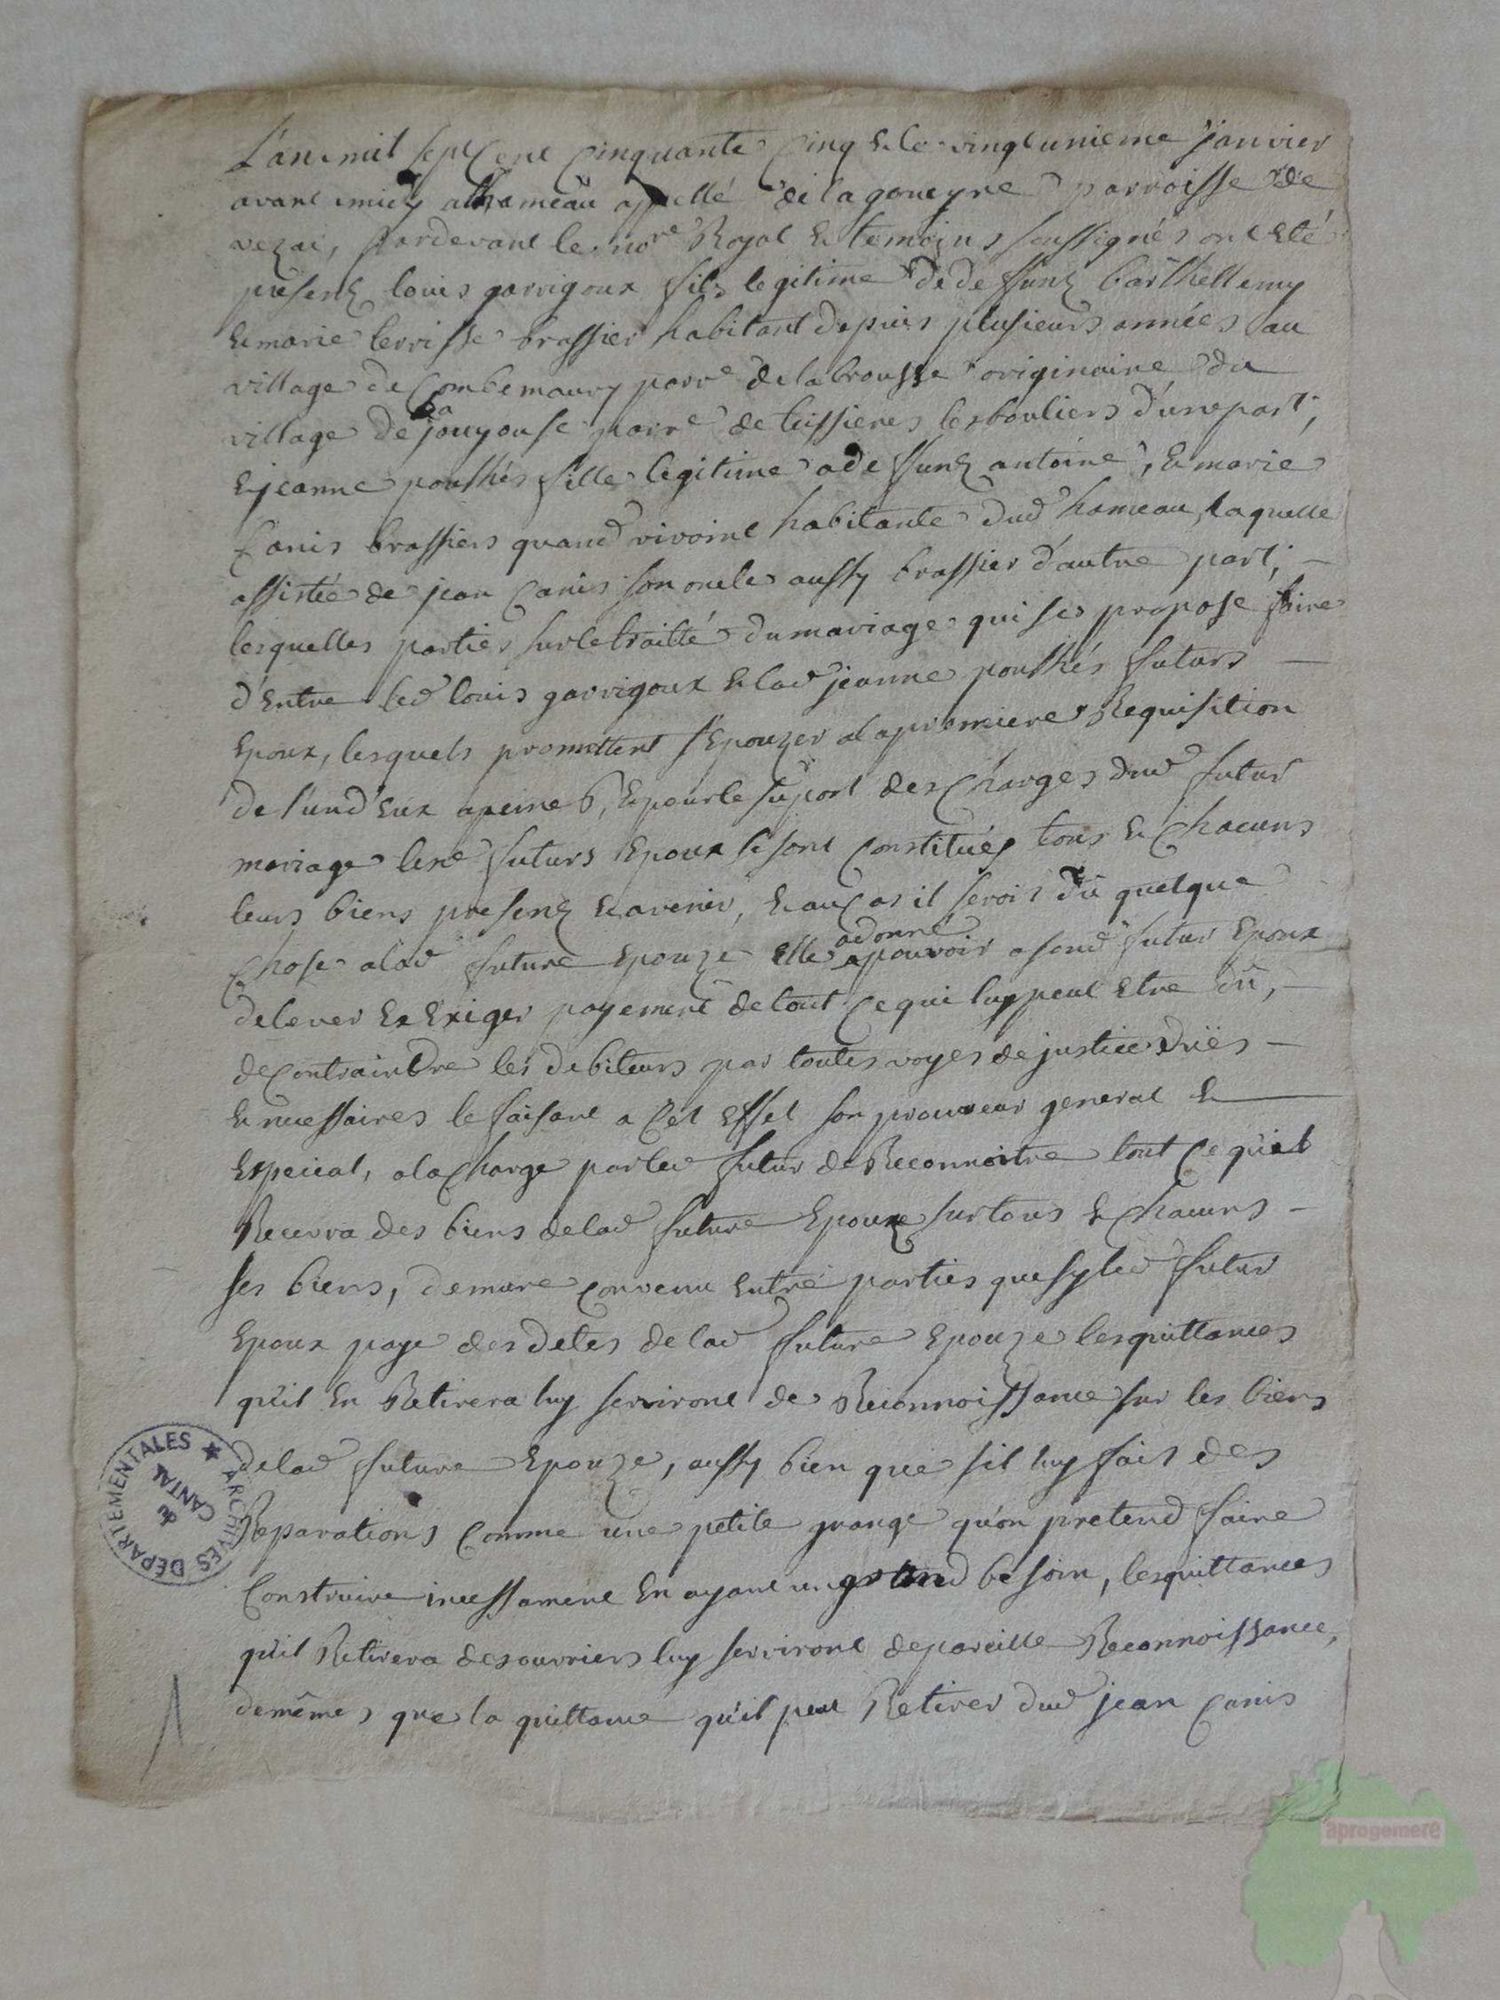 L'an mil sept Cent Cinquante Cinq & le vingt unieme janvier
avant midy au hameau appellé de lagoueyre parroisse de
vezac, pardevant le no.re Royal & temoins soussignés ont eté
presens louis garrigoux fils legitime de deffunt barthellemy
& marie brassier habitant depuis plusieurs années au
village de Combemaury parr.e de labrousse originaire du
village de la jouyouse parr.e de teissieres lesbouliers d'une part,
& jeanne pouthés fille legitime a deffunt antoine, & marie
Canis brassiers quand vivoint habitante dud hameau, laquelle
assistée de jean Canis son oncle aussy brassier d'autre part, —
lesquelles parties sur le traitté du mariage qui se propose faire
d'Entre led louis garrigoux & lad jeanne pouthés futurs —
Epoux, lesquels promettent s'Epouzer a la premiere Requisition
de l'un d'Eux a peine &, & pour le suport des Charges dud futur
mariage les futurs Epoux se sont Constitués tous & Chacuns
leurs biens presens & avenir, & au Cas il seroit dû quelque
Chose a lad future Epouze Elle adonné pouvoir a sond futur Epoux
de lever & Exiger payement de tout Ce qui luy peut Etre dû, —
de Contraindre les debiteurs par toutes voyes de justice dües —
& necessaires le faisant a Cet Effet son procureur general &
Especial, a la Charge par led futur de Reconnoitre tout Ce qu'il
Recevra des biens de lad future Epouze sur tous & Chacuns —
ses biens, demure Convenu Entre parties que sy led futur
Epoux paye des detes de lad future Epouze les quittances
qu'il En Retirera luy serviront de Reconnoissance sur les biens
de lad future Epouze, aussy bien que sil luy fait des
Reparations Comme une petite grange qu'on pretend faire
Construire incessament En ayant un grand besoin, les quittances
qu'il Retirera des ouvriers luy serviront de pareille Reconnoissance,
de mêmes que la quittance qu'il peut Retirer dud jean Canis
ARCHIVES DÉPARTEMENTALES ★
du
CANTAL
aprogemere